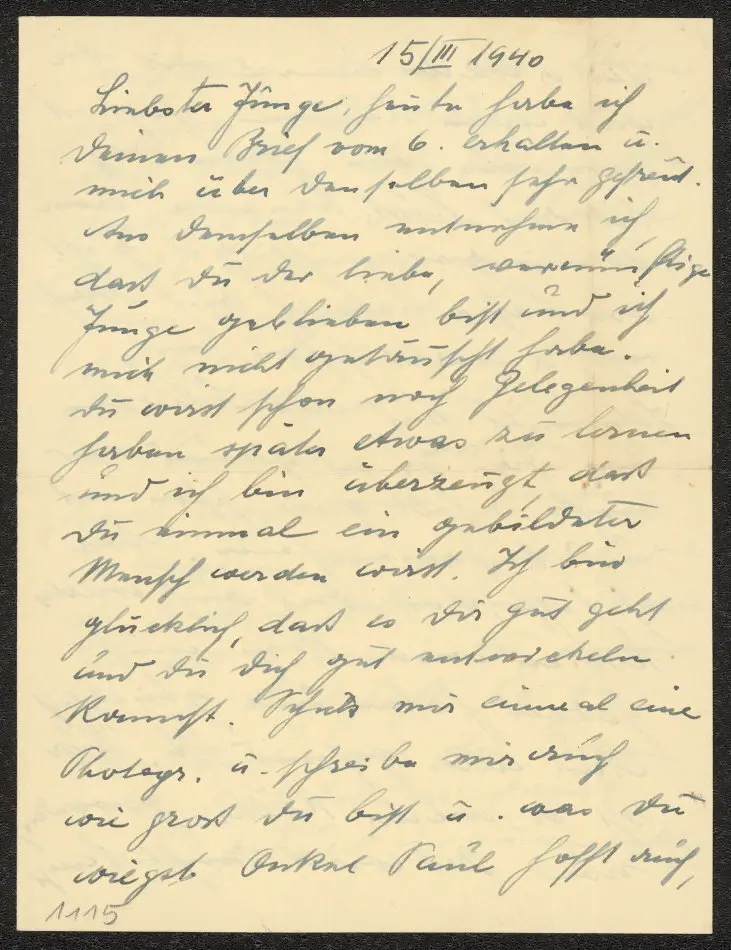 15/III 1940
Liebster Junge, heute habe ich
deinen Brief vom 6. erhalten u.
mich über denselben sehr gefreut.
Aus demselben entnehme ich,
dass du der liebe, vernünftige
Junge geblieben bist und ich
mich nicht getäuscht habe.
du wirst schon noch Gelegenheit
haben später etwas zu lernen
und ich bin überzeugt, dass
du einmal ein gebildeter
Mensch werden wirst. Ich bin
glücklich, dass es dir gut geht
und du dich gut entwickeln
kannst. Schick mir einmal eine
Photogr. u. schreibe mir auch
wie gross du bist u. was du
wiegst. Onkel Paul hofft auch,
1115